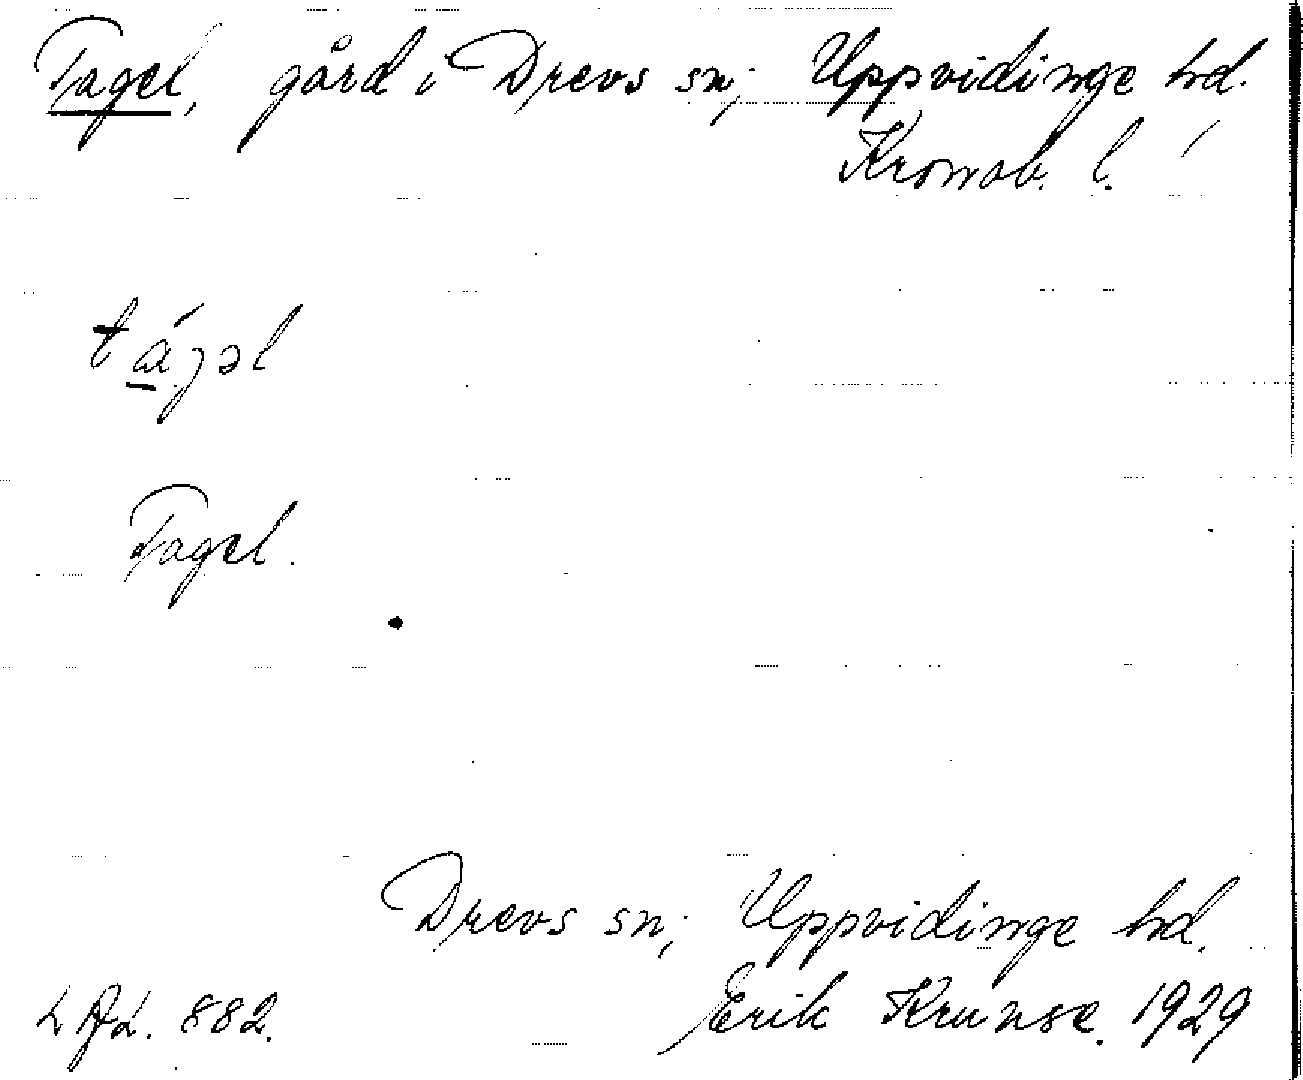 Tagel, gård i Drevs sn; Uppvidinge hd.
Kronob. l.
tágəl
Tagel.
Drevs sn; Uppvidinge hd.
Erik Krunse. 1929
882.